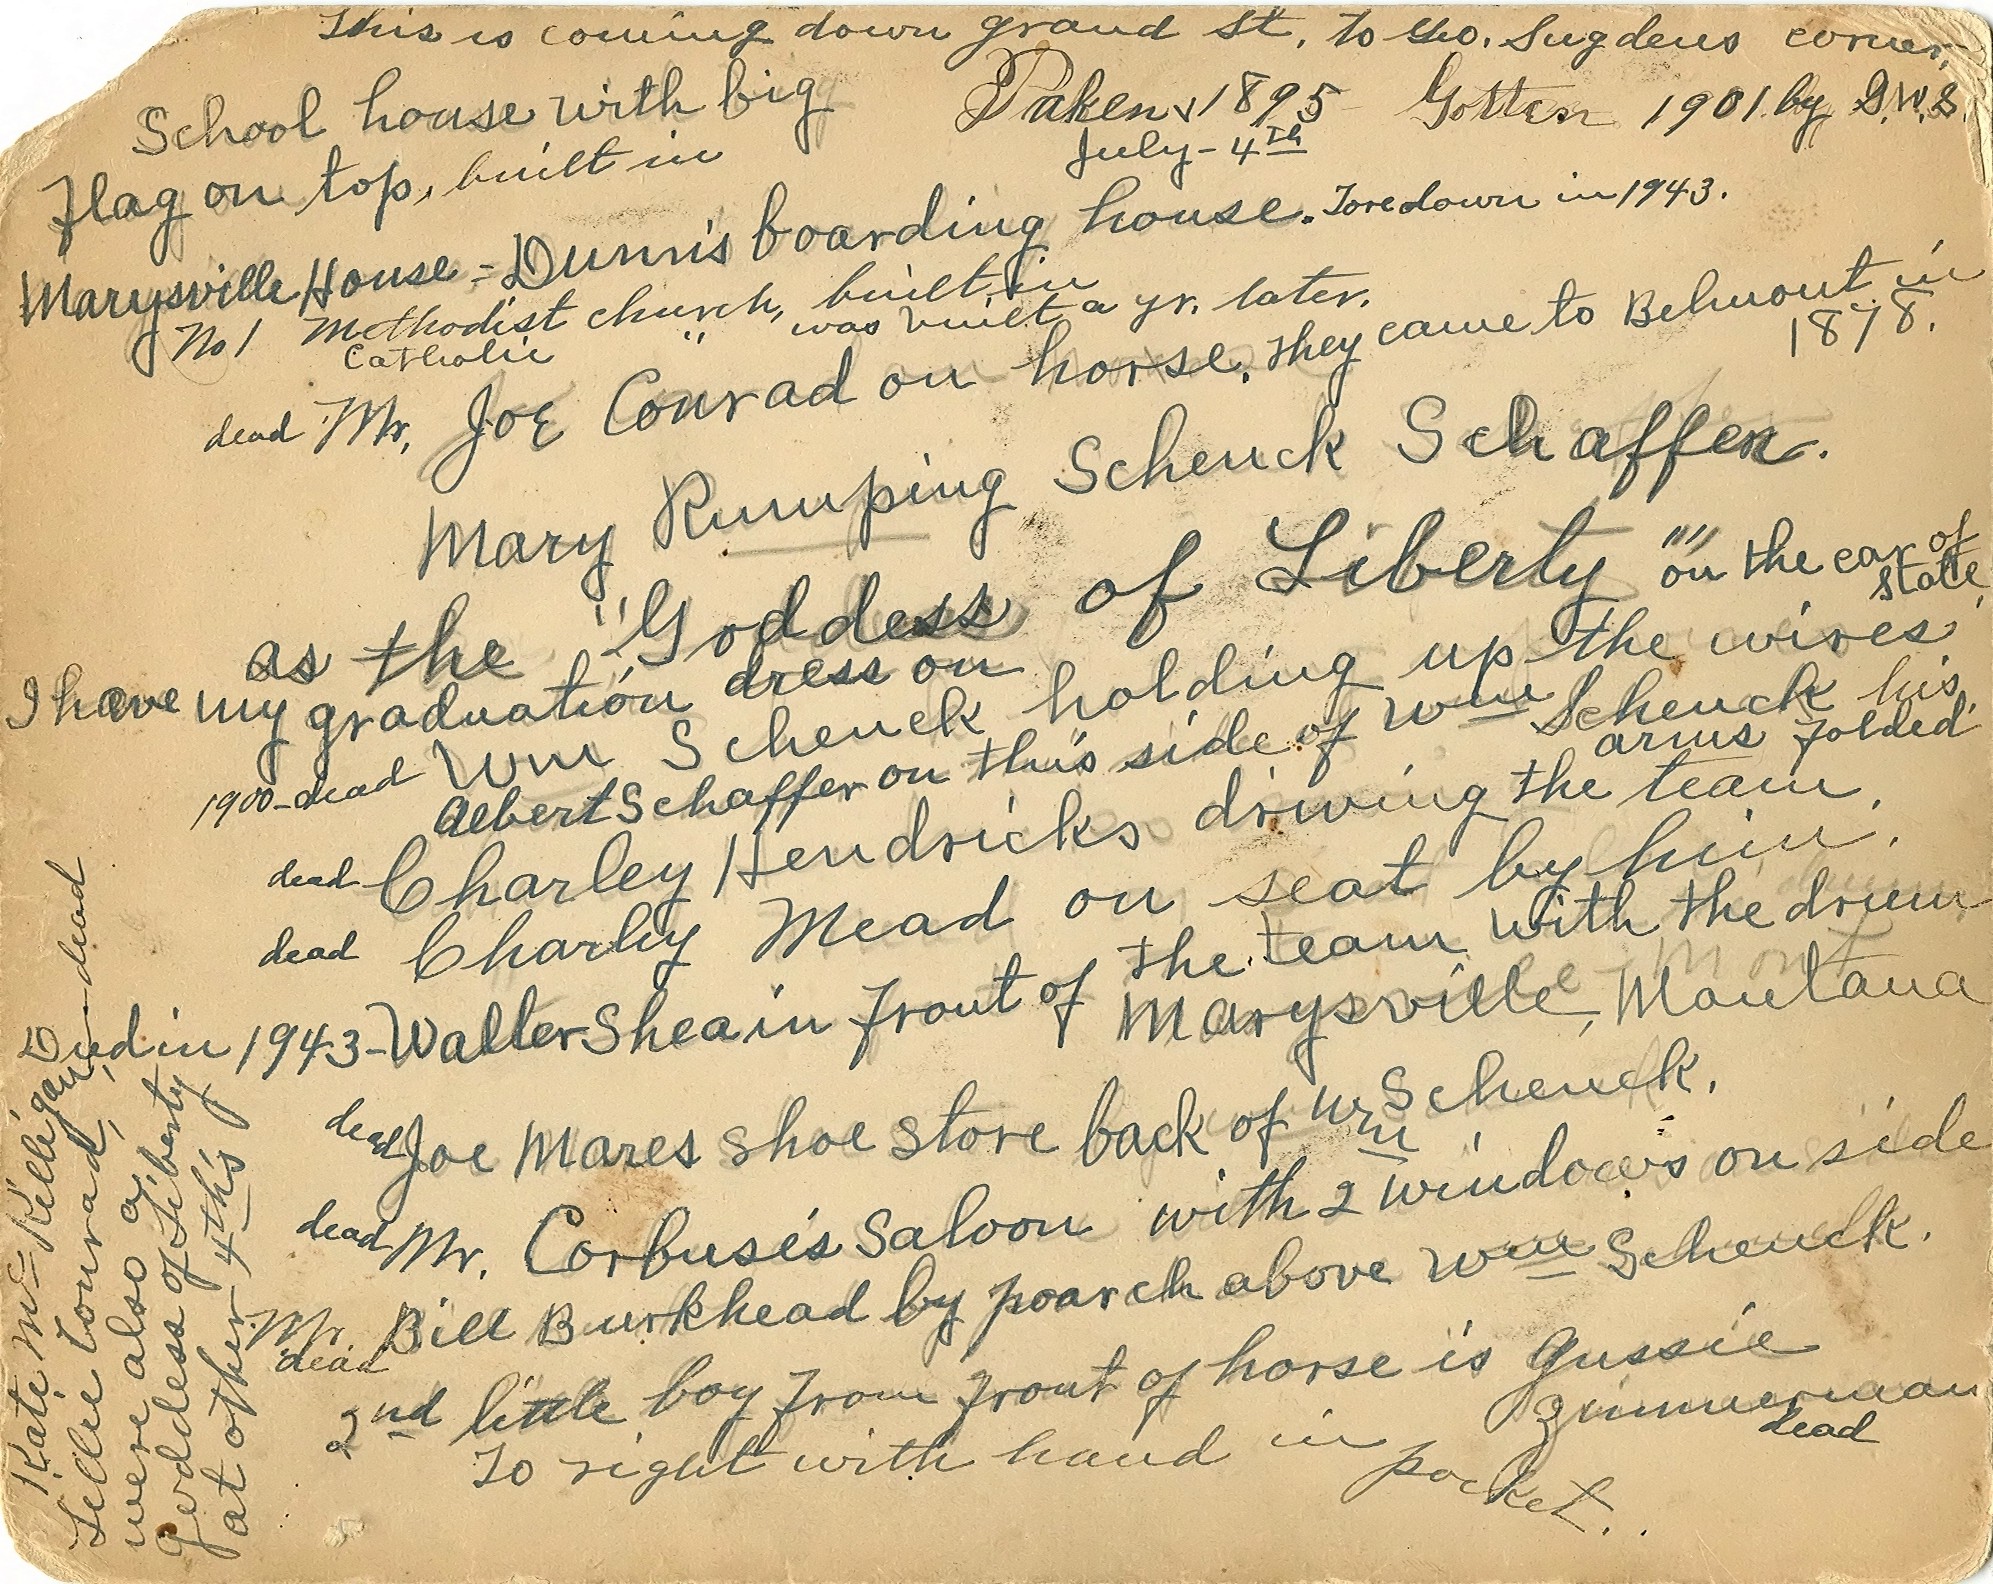 This is coming down grand St. to Geo. Sugdens corner.
School house with big
Flag on top, built in
Taken, 1895 Gotten 1901 by
July - 4th
Marysville House = Dunn's boarding house. Tore down in 1943.
No 1 Methodist church, built in
Catholic " was built a yr. later.
dead Mr. Joe Conrad on horse. they came to Belmont in
1878.
Mary Rumping Schenck Schaffer.
as the "Goddess of Liberty" on the car of
state
I have my graduation dress on
1900-dead Wm Schenck holding up the wires
Albert Schaffer on this side of Wm Schenck his
arms folded
dead Charley Hendricks driving the team.
dead Charley Mead on seat by him.
Died in 1943-Walter Shea in front of the team with the drum
Marysville, Montana
dead Joe Mares shoe store back of Wm Schenck.
dead Mr. Corbuse's Saloon with 2 windows on side
Mr. Bill Burkhead by poarch above Wm Schenck.
dead
2nd little boy from front of horse is Gussie
Zimmerman
dead
To right with hand in pocket.
Kate Mc=Killigan-dead
Lillie Conrad,
were also a
goddess of Liberty
at other 4th's